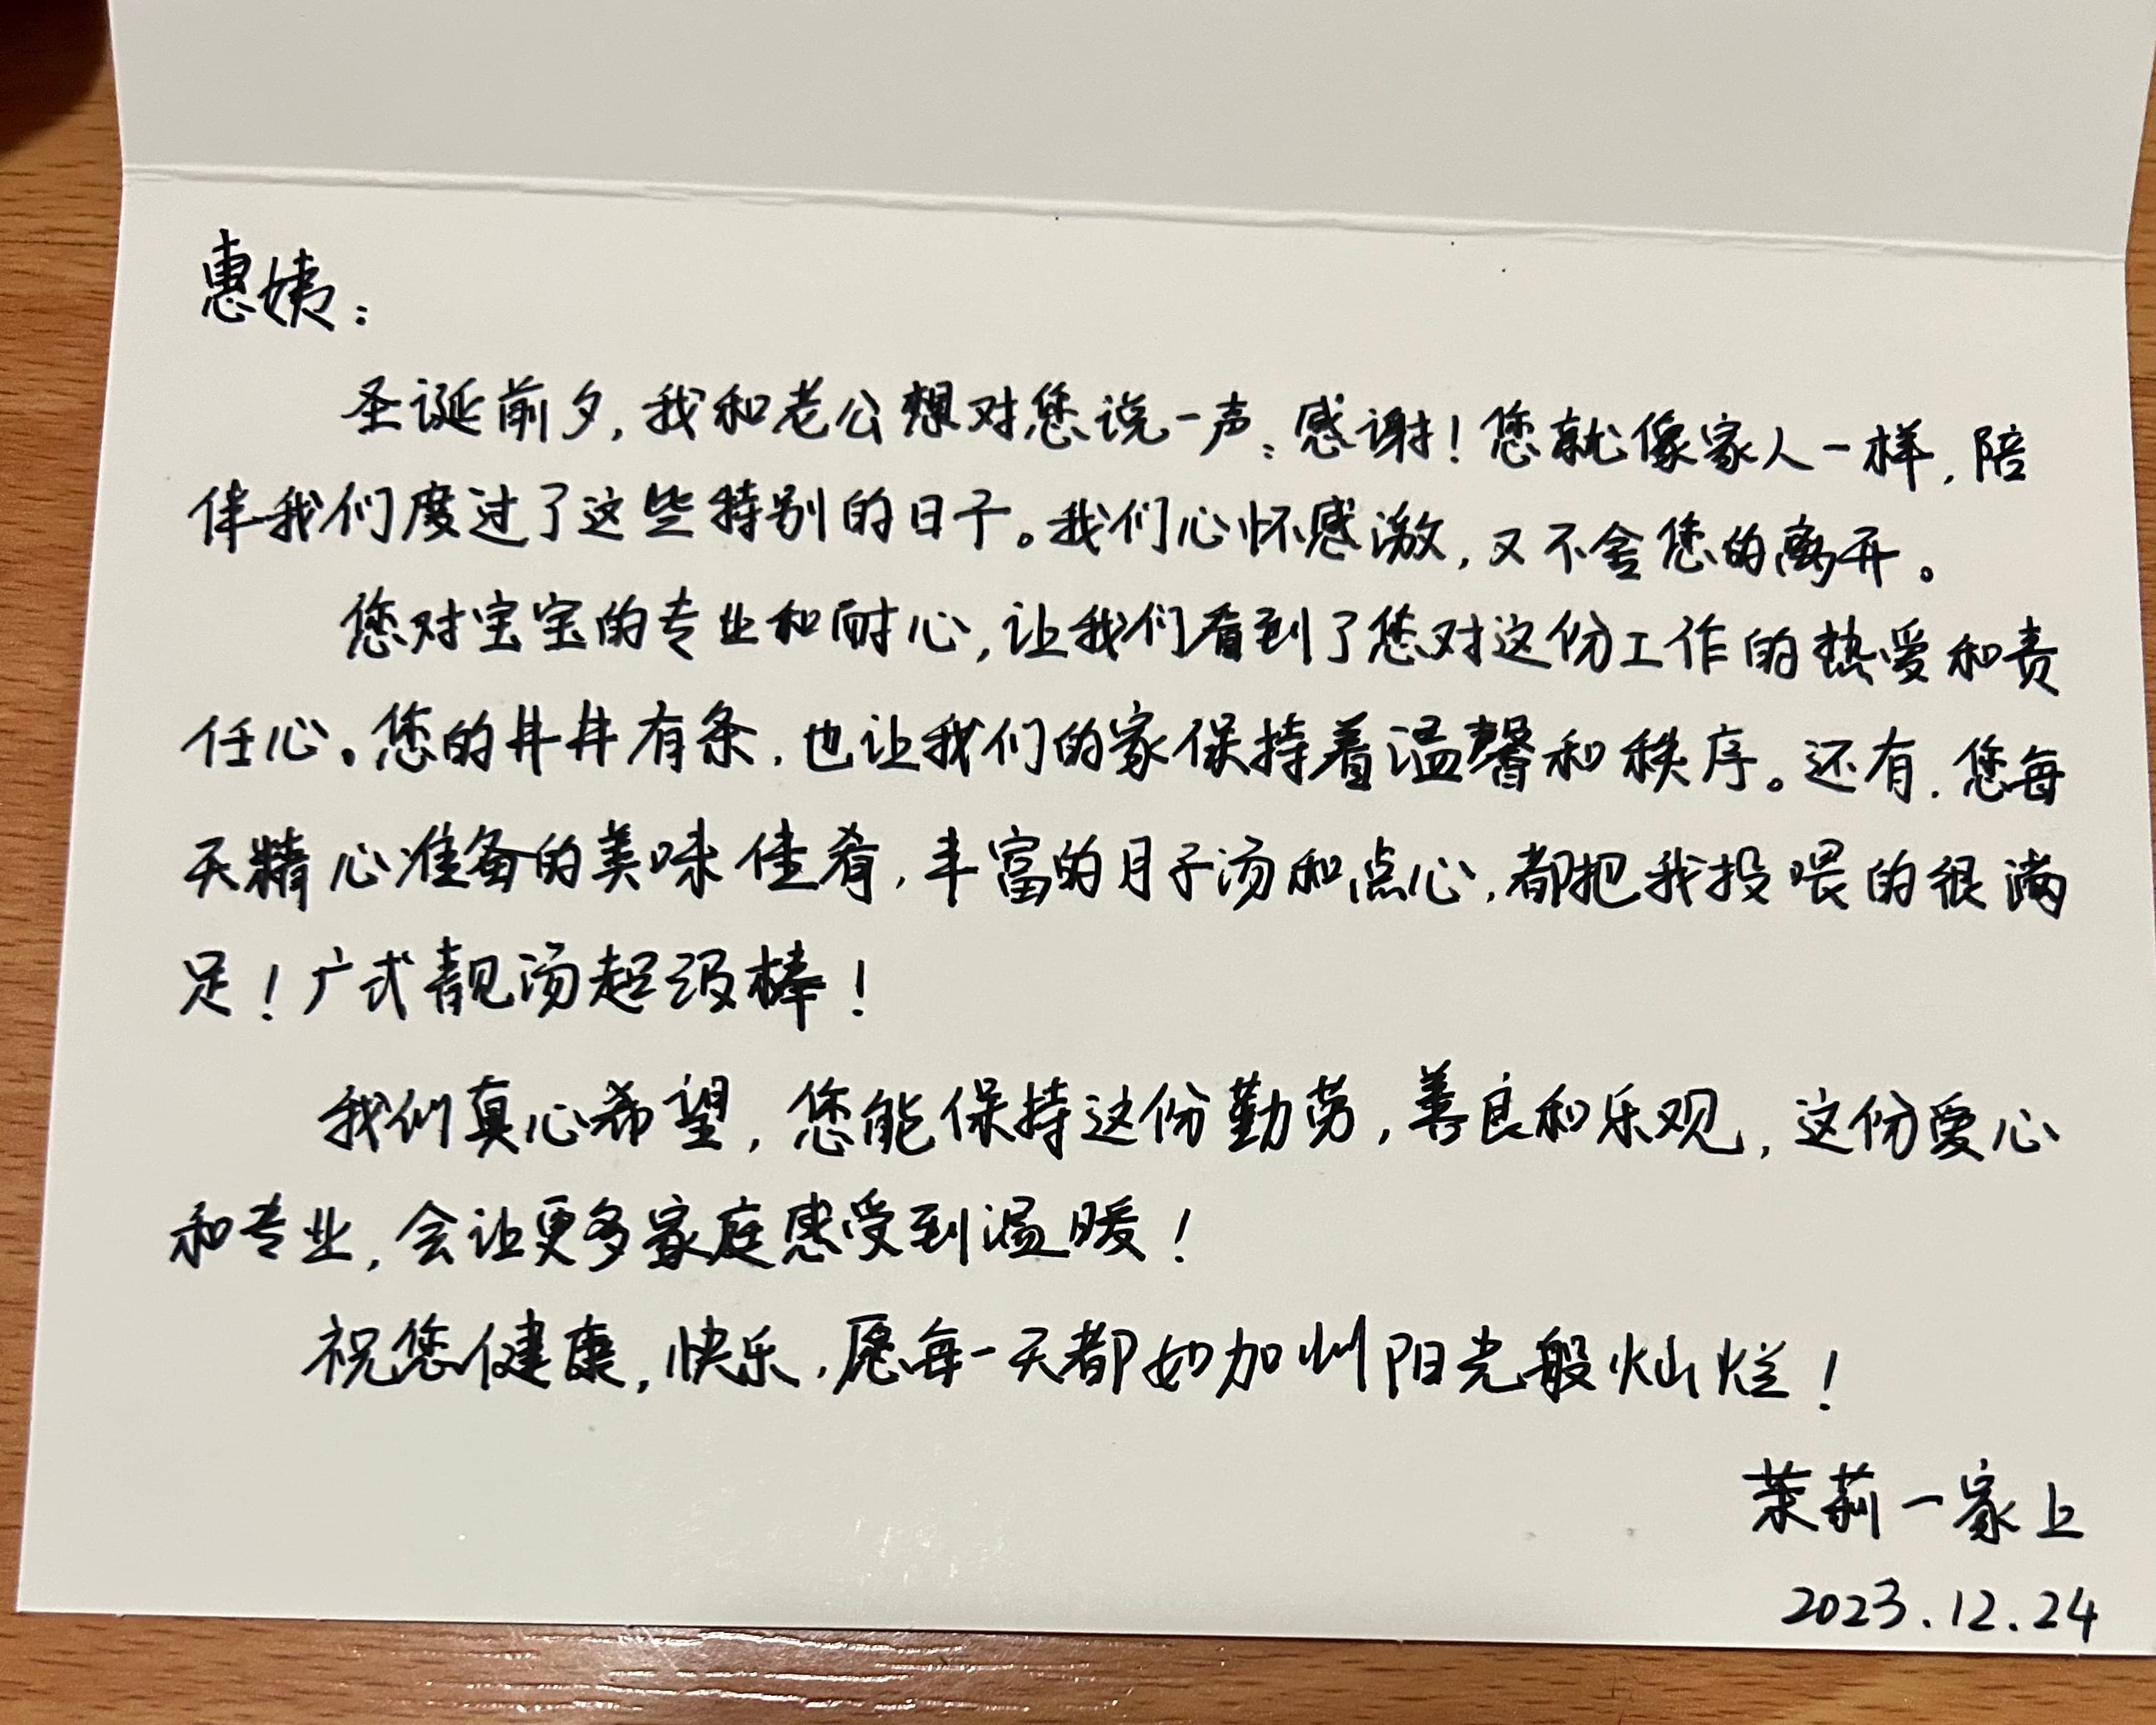 惠姨：
圣诞前夕，我和老公想对您说一声：感谢！您就像家人一样，陪
伴我们度过了这些特别的日子。我们心怀感激，又不舍您的离开。
您对宝宝的专业和耐心，让我们看到了您对这份工作的热爱和责
任心。您的井井有条，也让我们的家保持着温馨和秩序。还有，您每
天精心准备的美味佳肴，丰富的月子汤和点心，都把我投喂的很满
足！广式靓汤超级棒！
我们真心希望，您能保持这份勤劳，善良和乐观，这份爱心
和专业，会让更多家庭感受到温暖！
祝您健康，快乐，愿每一天都如加州阳光般灿烂！
茉莉一家上
2023.12.24